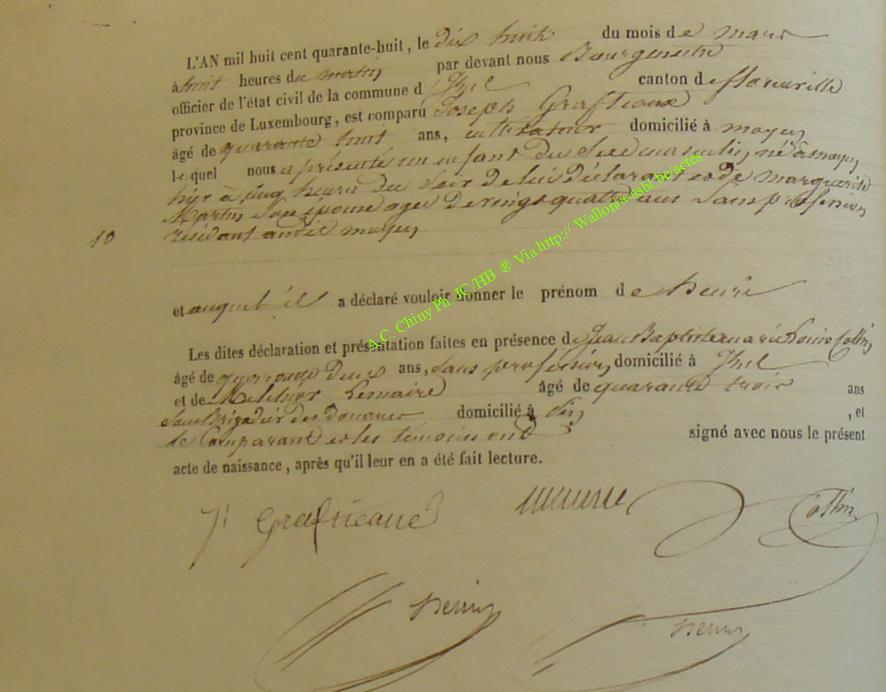 L'AN mil huit cent quarante-huit, le dix huit du mois de mars
à huit heures du matin par devant nous Bourgmestre
officier de l'état civil de la commune d'Izel canton de florenville
province de Luxembourg, est comparu Joseph Grafteaux
âgé de quarante huit ans, cultivateur domicilié à moyen
le quel nous a présenté un enfant du Sexe masculin, né à moyen
hyr à cinq heures du Soir de lui déclarant et de marguerite
Martin Son épouse agée de vingt quatre ans Sans profession
10 résidant audit moyen
et auquel il a déclaré vouloir donner le prénom de henri
Les dites déclaration et présentation faites en présence de Jean Baptiste marie Louis Collin
âgé de deux ans, Sans profession, domicilié à Izel
et de Melchior Lemaire âgé de quarante trois ans
Sous Brigadier des Douanes domicilié à , et
le Comparant et les témoins ont signé avec nous le présent
acte de naissance, après qu'il leur en a été fait lecture.
J. Grafteaux Lemaire Collin
henri henri
A.C. Chiny Ph JC/HB ® Via http:// Wallonia-asbl.be/actes